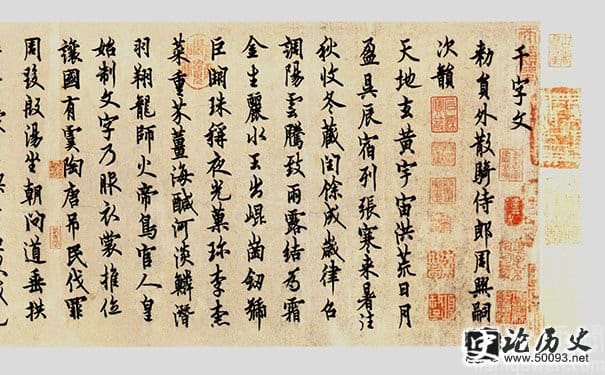 千字文
勑員外散騎侍郎周興嗣
次韻
天地玄黃宇宙洪荒日月
盈昃辰宿列張寒来暑往
秋收冬藏閏餘成歲律召
調陽雲騰致雨露結為霜
金生麗水玉出崐崗劒號
巨闕珠稱夜光菓珎李柰
菜重芥薑海鹹河淡鱗潛
羽翔龍師火帝鳥官人皇
始制文字乃服衣裳推位
讓國有虞陶唐吊民伐罪
周發殷湯坐朝問道垂拱
论历史
www.50093.net